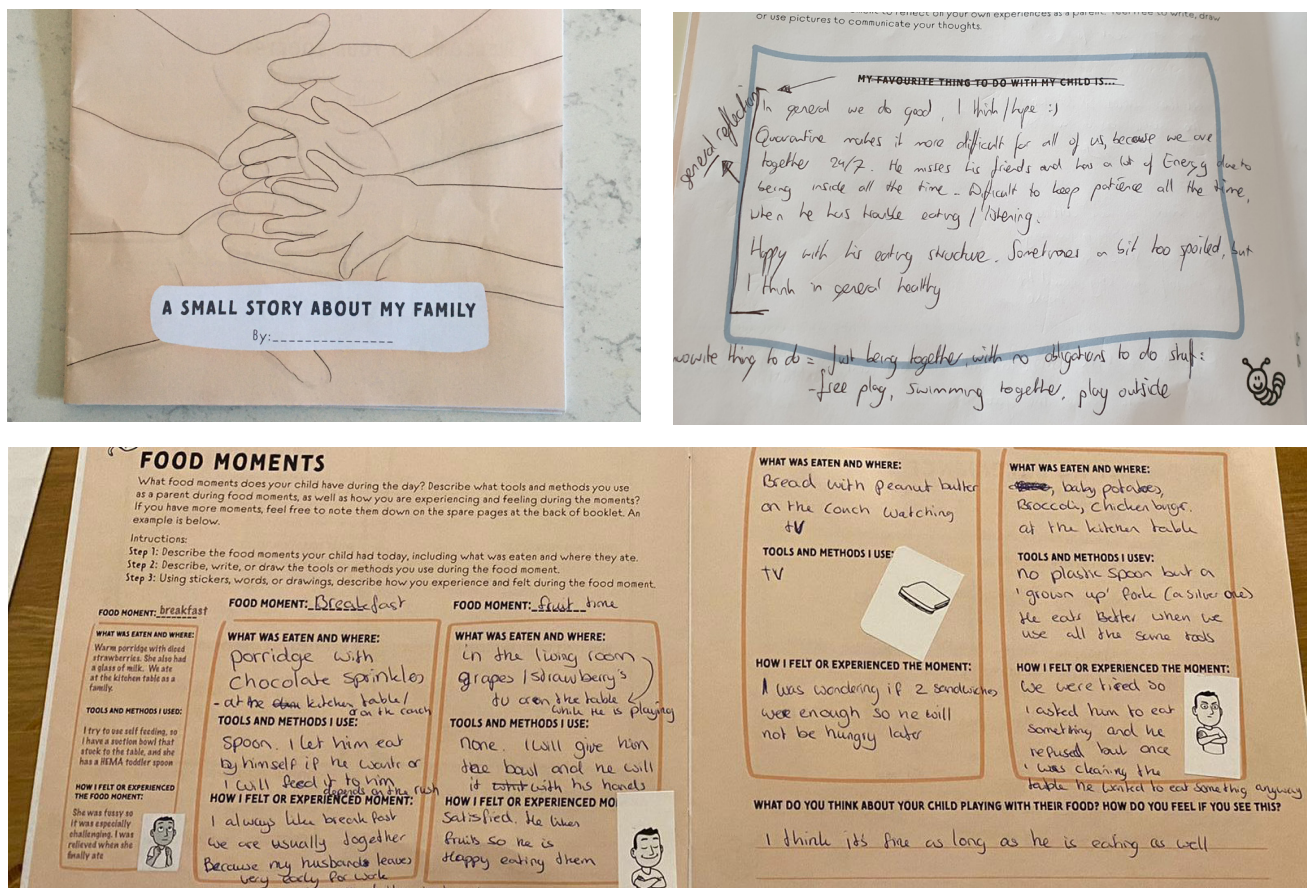 A SMALL STORY ABOUT MY FAMILY
By:_______________
or use pictures to communicate your thoughts.
MY FAVOURITE THING TO DO WITH MY CHILD IS...
general reflection
In general we do good, I think/hope :)
Quarantine makes it more difficult for all of us, because we are
together 24/7. He misses his friends and has a lot of Energy due to
being inside all the time - Difficult to keep patience all the time,
when he has trouble eating / listening.
Happy with his eating structure. Sometimes a bit too spoiled, but
I think in general healthy
thing to do = Just being together, with no obligations to do stuff:
-free play, swimming together, play outside
FOOD MOMENTS
What food moments does your child have during the day? Describe what tools and methods you use
as a parent during food moments, as well as how you are experiencing and feeling during the moments?
If you have more moments, feel free to note them down on the spare pages at the back of booklet. An
example is below.
Intructions:
Step 1: Describe the food moments your child had today, including what was eaten and where they ate.
Step 2: Describe, write, or draw the tools or methods you use during the food moment.
Step 3: Using stickers, words, or drawings, describe how you experience and felt during the food moment.
FOOD MOMENT: breakfast
WHAT WAS EATEN AND WHERE:
Warm porridge with diced
strawberries. She also had
a glass of milk. We ate
at the kitchen table as a
family.
TOOLS AND METHODS I USED:
I try to use self feeding, so
I have a suction bowl that
stuck to the table, and she
has a HEMA toddler spoon
HOW I FELT OR EXPERIENCED
THE FOOD MOMENT:
She was fussy so
it was especially
challenging. I was
relieved when she
finally ate
FOOD MOMENT: Breakfast
WHAT WAS EATEN AND WHERE:
porridge with
chocolate sprinkles
- at the kitchen table/
or on the couch
TOOLS AND METHODS I USE:
Spoon. I let him eat
by himself if he wants or
I will feed it to him
depends on the rush
HOW I FELT OR EXPERIENCED MOMENT:
I always like breakfast
we are usually together
Because my husbands leaves
very early for work
FOOD MOMENT: fruit time
WHAT WAS EATEN AND WHERE:
in the living room
grapes / strawberry's
tv or on the table
while he is playing
TOOLS AND METHODS I USE:
none. I will give him
the bowl and he will
it with his hands
HOW I FELT OR EXPERIENCED MO
Satisfied. He likes
fruits so he is
Happy eating them
WHAT WAS EATEN AND WHERE:
Bread with peanut butter
on the couch watching
tv
TOOLS AND METHODS I USE:
TV
HOW I FELT OR EXPERIENCED THE MOMENT:
I was wondering if 2 sandwiches
were enough so he will
not be hungry later
WHAT WAS EATEN AND WHERE:
, baby potatoes,
Broccoli, chicken burger.
at the kitchen table
TOOLS AND METHODS I USEV:
no plastic spoon but a
'grown up' fork (a silver one)
He eats better when we
use all the same tools
HOW I FELT OR EXPERIENCED THE MOMENT:
we were tired so
I asked him to eat
something and he
refused but once
I was cleaning the
table he wanted to eat something anyway
WHAT DO YOU THINK ABOUT YOUR CHILD PLAYING WITH THEIR FOOD? HOW DO YOU FEEL IF YOU SEE THIS?
I think it's fine as long as he is eating as well